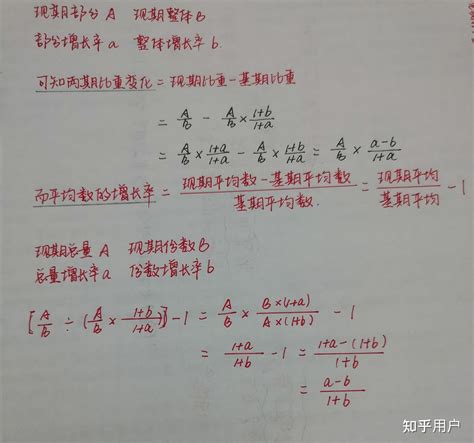 现期部分 A 现期整体 B
部分增长率 a 整体增长率 b.
可知两期比重变化 = 现期比重 - 基期比重
= A/B - A/B × (1+b)/(1+a)
= A/B × (1+a)/(1+a) - A/B × (1+b)/(1+a) = A/B × (a-b)/(1+a)
而平均数的增长率 = (现期平均数 - 基期平均数)/(基期平均数.) = (现期平均)/(基期平均) - 1
现期总量 A 现期份数 B
总量增长率 a 份数增长率 b
[A/B ÷ (A/B × (1+b)/(1+a))] - 1 = A/B × (B×(1+a))/(A×(1+b)) - 1
= (1+a)/(1+b) - 1 = (1+a-(1+b))/(1+b)
= (a-b)/(1+b)
知乎用户